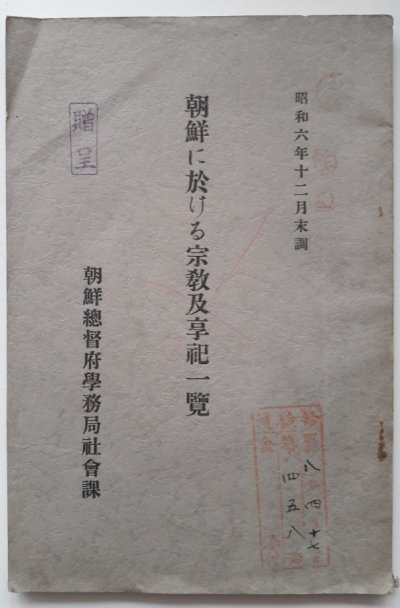 昭和六年十二月末調
朝鮮に於ける宗教及享祀一覽
贈呈
朝鮮總督府學務局社會課
八 四 十七
四五八